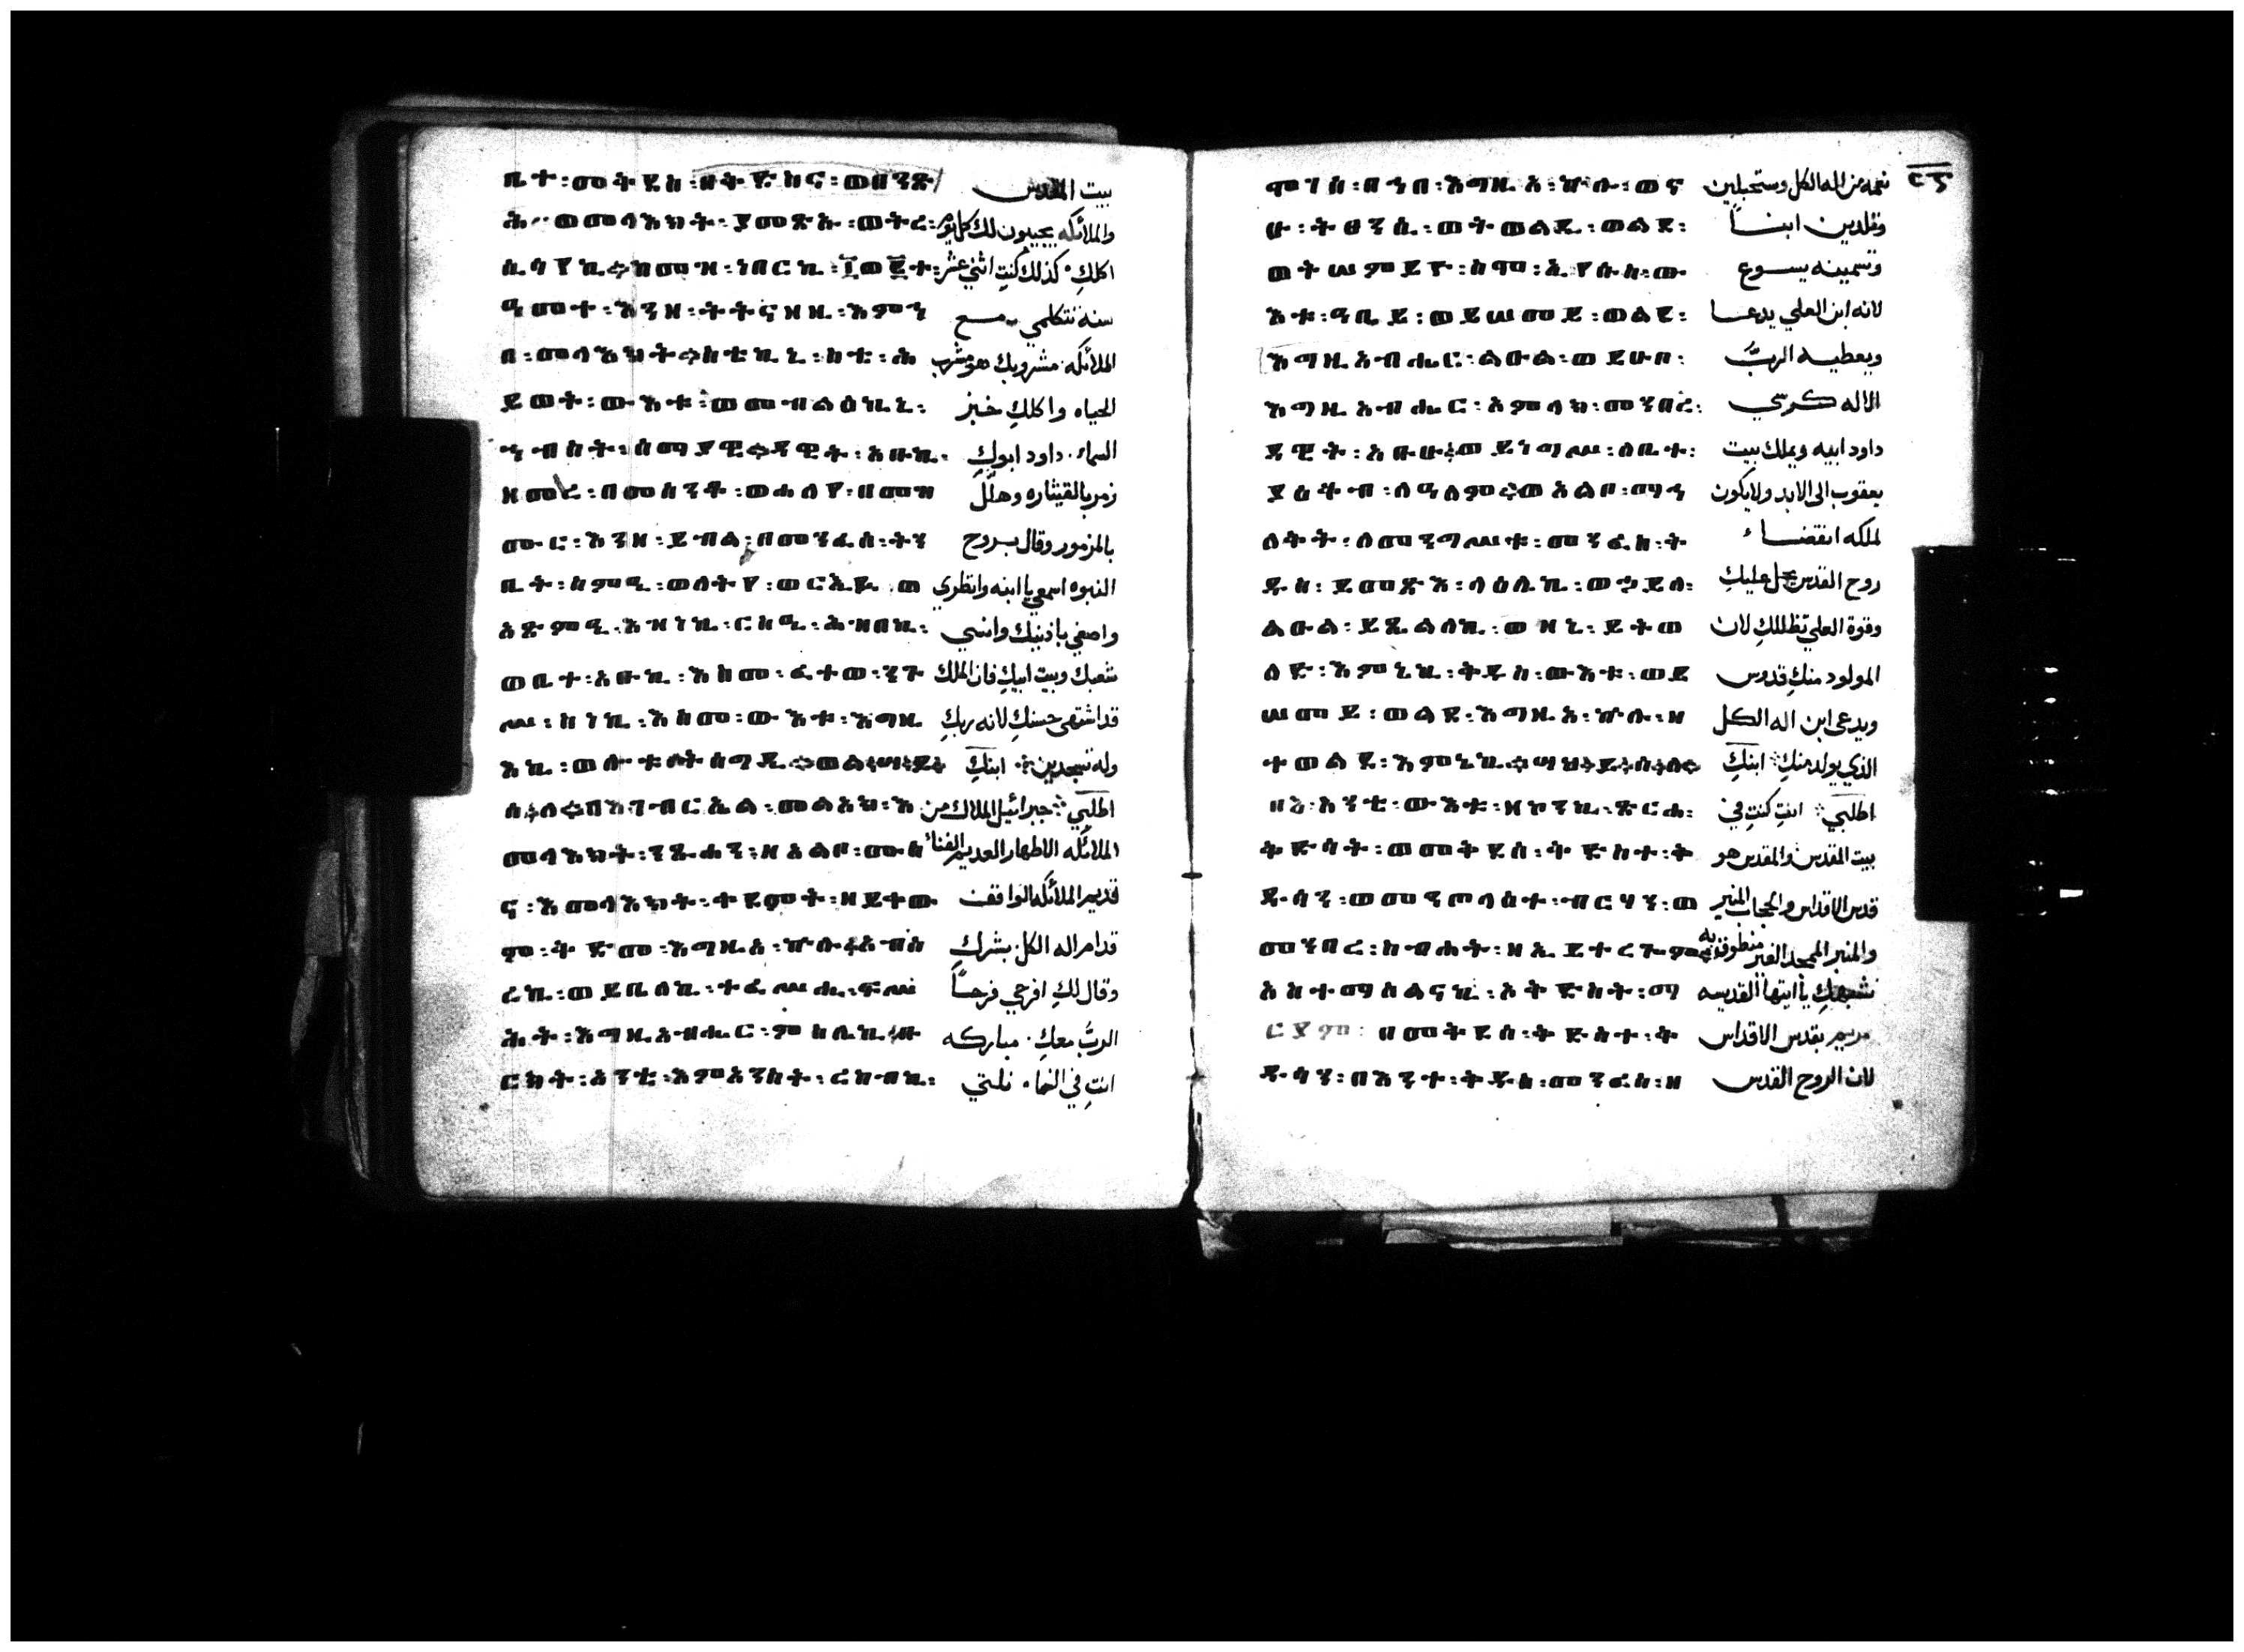 ቤተ፡መቅደስ፡ በቅድስና፡ወበንጽ بيت المقدس
ሕ ወመላእክት፡ያመጽኡ፡ወትረ፡ والملائكه يجيبون لك كل يوم
ሲሳየኪ፡ከመዝ፡ነበርኪ፡፲ወ፪ተ፡ اكلكِ كذلك كنتِ اثني عشر
ዓመተ፡እንዘ፡ትትናዘዚ፡እምኀ سنه تتكلمي مع
በ፡መላእክት፡ስቴኪኒ፡ስቴ፡ሕ الملائكه مشروبك هو مشرب
ይወት፡ውእቱ፡ወመብልዕኪኒ፡ الحياه واكلكِ خبز
ኀብስት፡ሰማያዊ፡ዳዊት፡አቡኪ፡ السماء داود ابوكِ
ዘመረ፡በመሰንቆ፡ወሐሰየ፡በመዝ زمر بالقيثاره وهلّل
ሙር፡እንዘ፡ይብል፡በመንፈሰ፡ትን بالمزمور وقال بروح
ቢት፡ስምዒ፡ወለትየ፡ወርእዪ ወ النبوه اسمعي يا ابنه وانظري
አጽምዒ፡እዝነኪ፡ርስዒ፡ሕዝበኪ፡ واصغي باذنيك وانسي
ወቤተ፡አቡኪ፡እስመ፡ፈተወ፡ንጉ شعبك وبيت ابيكِ فان الملك
ሥ፡ስነኪ፡እስመ፡ውእቱ፡እግዚ قد اشتهى حسنكِ لانه ربكِ
እኪ፡ወሎቱ፡ትሰግዲ፡ወልድኪ وله تسجدين ابنكِ
ገብርኤል፡መልአክ፡እ اطلبي جبرائيل الملاك من
መላእክት፡ንጹሓን፡ዘእልቦ፡ሙስ الملائكه الاطهار العديم الفناء
ና፡እመላእክት፡ቀደምት፡ዘይቀው قديم الملائكه الواقف
ም፡ቅድመ፡እግዚአ፡ኵሉ፡አብሰ قدام اله الكل بشركِ
ረኪ፡ወይቤለኪ፡ተፈሥሒ፡ፍሥ وقال لكِ افرحي فرحاً
ሕት፡እግዚአብሔር፡ምስሌኪ፡ቡ الربُّ معكِ مباركه
ርክት፡አንቲ፡እምአንስት፡ረከብኪ፡ انتِ في النساء نلتي
ሞገሰ፡በኀበ፡እግዚአ፡ኵሉ፡ወና نعمه من اله الكل وستحبلين
ሁ፡ትፀንሲ፡ወትወልዲ፡ወልደ፡ وتلدين ابناً
ወትሠምይዮ፡ስሞ፡ኢየሱስ፡ው وتسمينه يسوع
እቱ፡ዓቢይ፡ወይሠመይ፡ወልደ፡ لانه ابن العلي يدعا
እግዚአብሔር፡ልዑል፡ወይሁቦ፡ ويعطيه الربُّ
እግዚአብሔር፡አምላክ፡መንበረ፡ الاله كرسي
ዳዊት፡አቡሁ፡ወይነግሥ፡ለቤተ፡ داود ابيه ويملك بيت
ያዕቆብ፡ለዓለም፡ወአልቦ፡ማኅ يعقوب الى الابد ولا يكون
ለቅት፡ለመንግሥቱ፡መንፈስ፡ቅ لملكه انقضاء
ዱስ፡ይመጽእ፡ላዕሌኪ፡ወኃይለ፡ روح القدس يحل عليكِ
ልዑል፡ይጼልለኪ፡ወዘኒ፡ይትወ وقوة العلي تظللكِ لان
ለድ፡እምኔኪ፡ቅዱስ፡ውእቱ፡ወይ المولود منكِ قدوس
ሠመይ፡ወልደ፡እግዚአ፡ኵሉ፡ዘ ويدعى ابن اله الكل
ተወልደ፡እምኔኪ الذي يولد منكِ ابنكِ
አንቲ፡ውእቱ፡ዘኮንኪ፡ጽርሐ፡ اطلبي انتِ كنتِ في
ቅድሳት፡ወመቅደሰ፡ቅድስት፡ቅ بيت المقدس والمقدس هو
ዱሳን፡ወመንጦላዕት፡ብርሃን፡ወ قدس الاقداس والحجاب المنير
መንበረ፡ስብሐት፡ዘኢይትረጐም والمنبر الممجد الغير منطوق به
አስተማሰልናኪ፡አቅድስት፡ማ نشبهكِ يا ايتها القديسه
ርያም፡ በመቅደሰ፡ቅድስት፡ቅ مريم بقدس الاقداس
ዱሳን፡በእንተ፡ቅዱስ፡መንፈስ፡ዘ لان الروح القدس